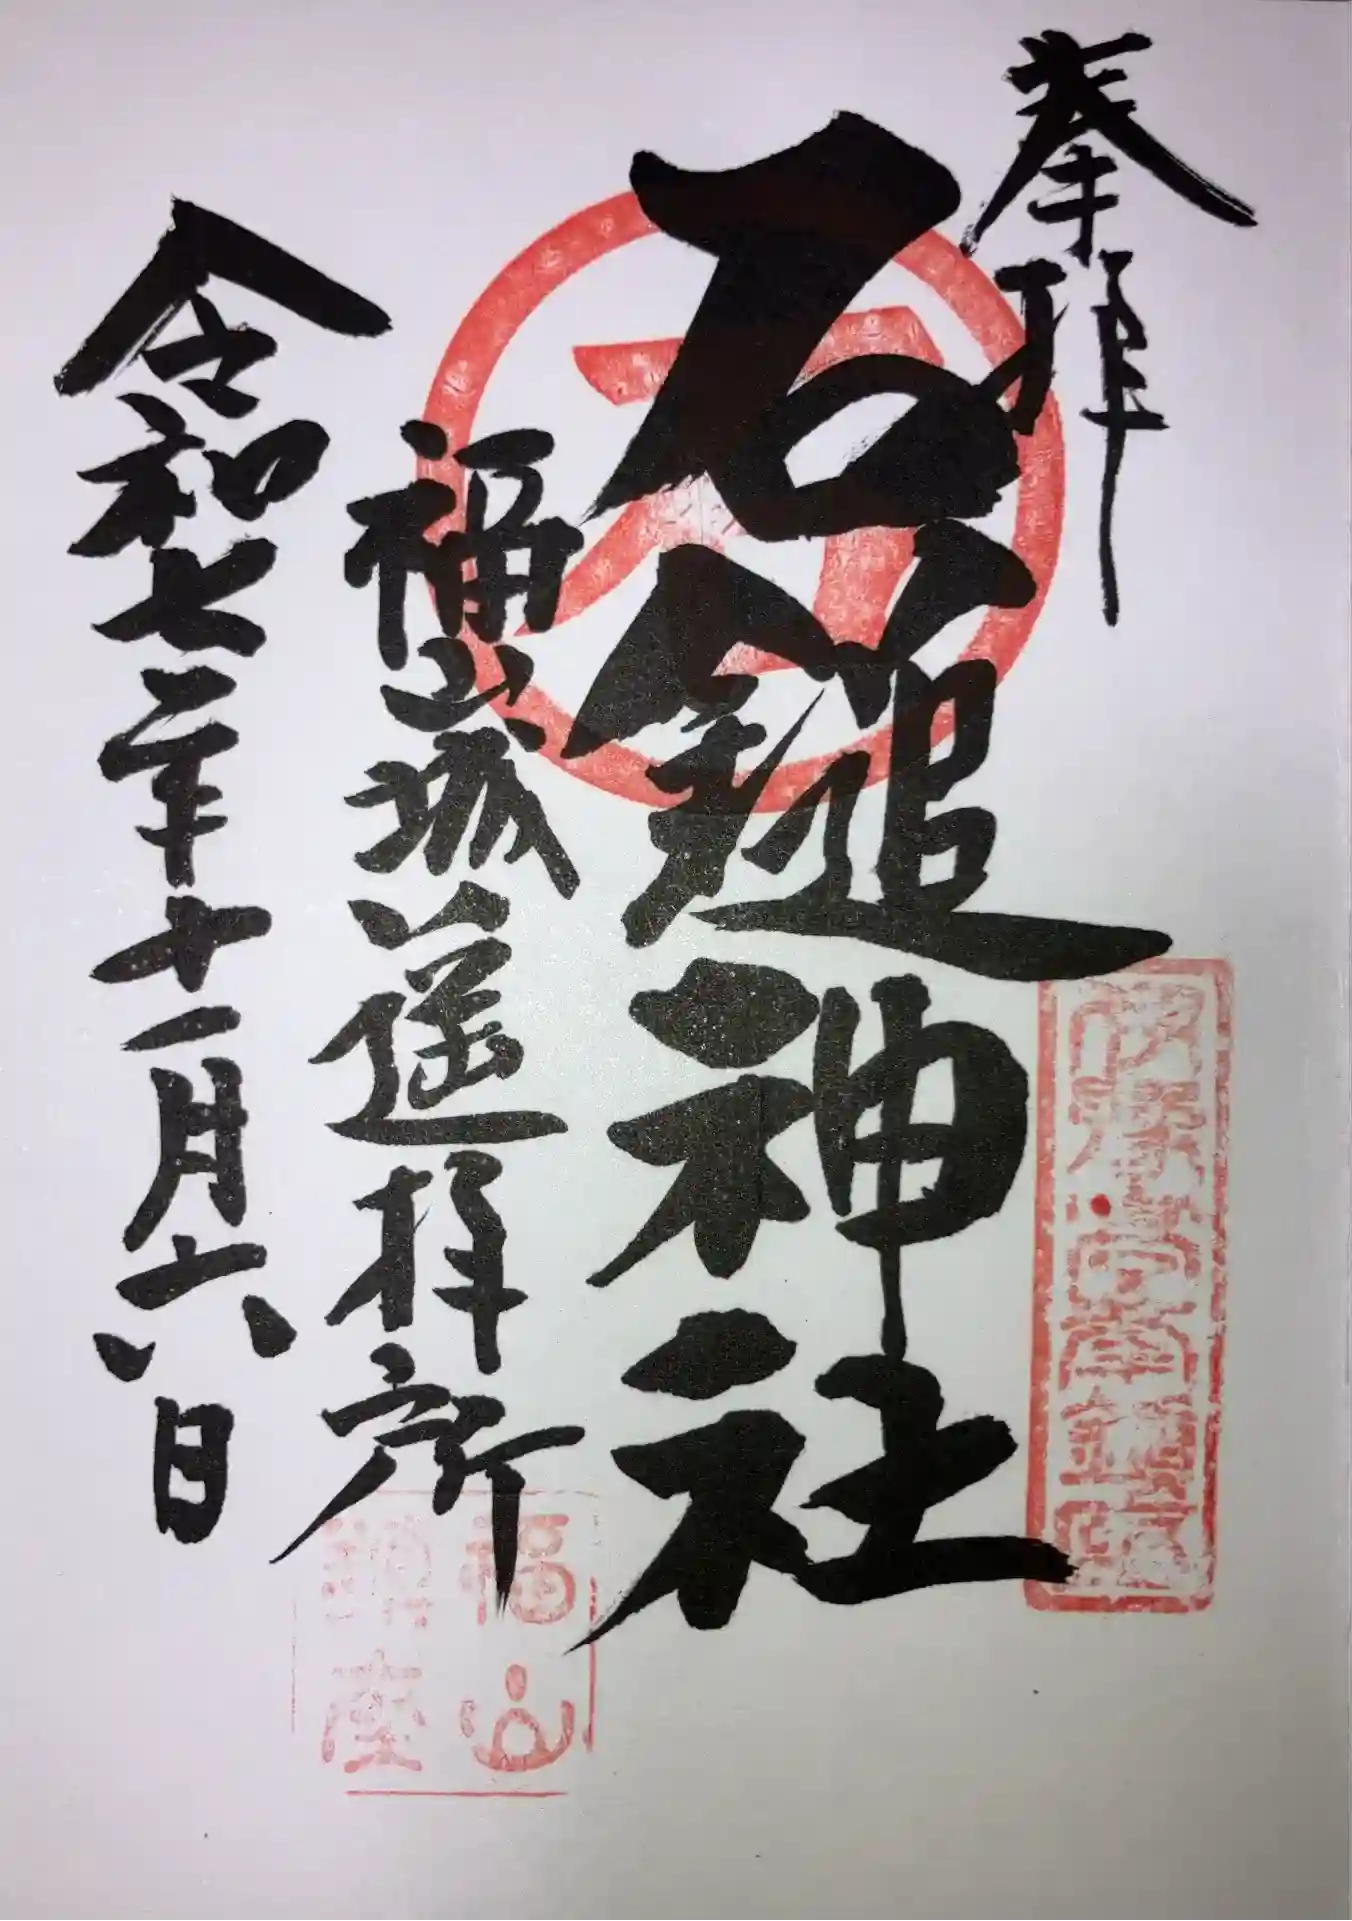 奉拝
石鎚神社
福山城遥拝所
令和七年十一月六日
福山
鎮座